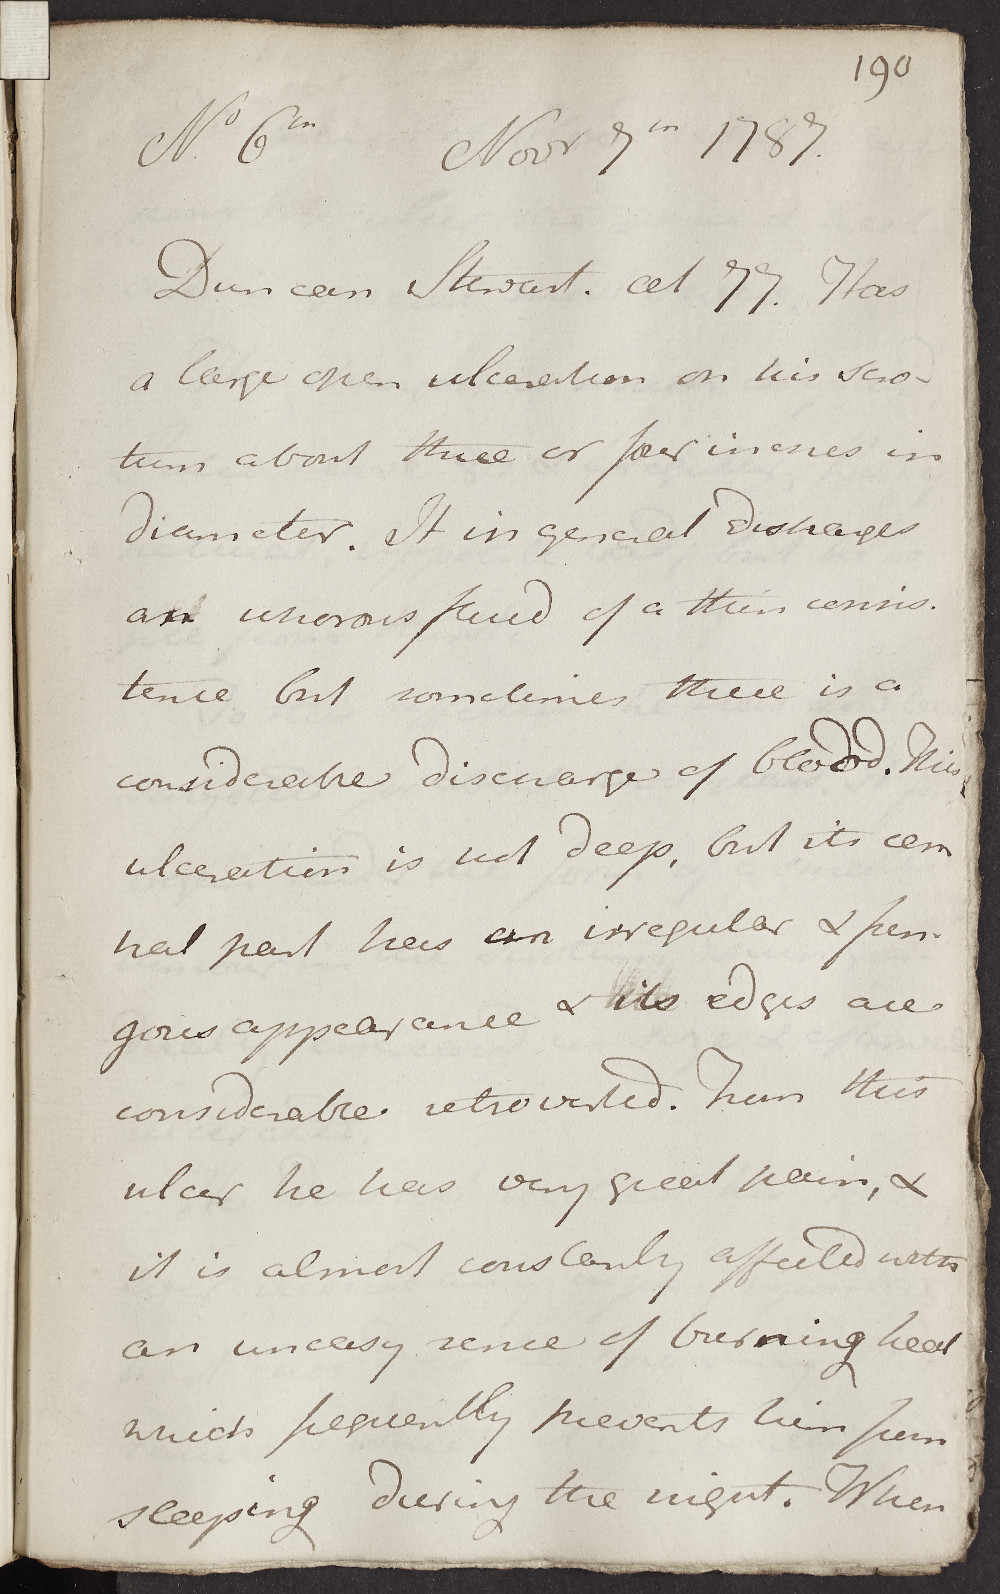 190
No 6th Novr 7th 1787.
Duncan Stewart. aet 77. Has
a large open ulceration on his scro-
tum about three or four inches in
diameter. It in general discharges
an ichorous fluid of a thin consis-
tence but sometimes there is a
considerable discharge of blood. This
ulceration is not deep, but its cen
tral part has an irregular & fun-
gous appearance & its edges are
considerable retroverted. From this
ulcer he has very great pain, &
it is almost constantly affected with
an uneasy sence of burning heat
which frequently prevents him from
sleeping during the night. When